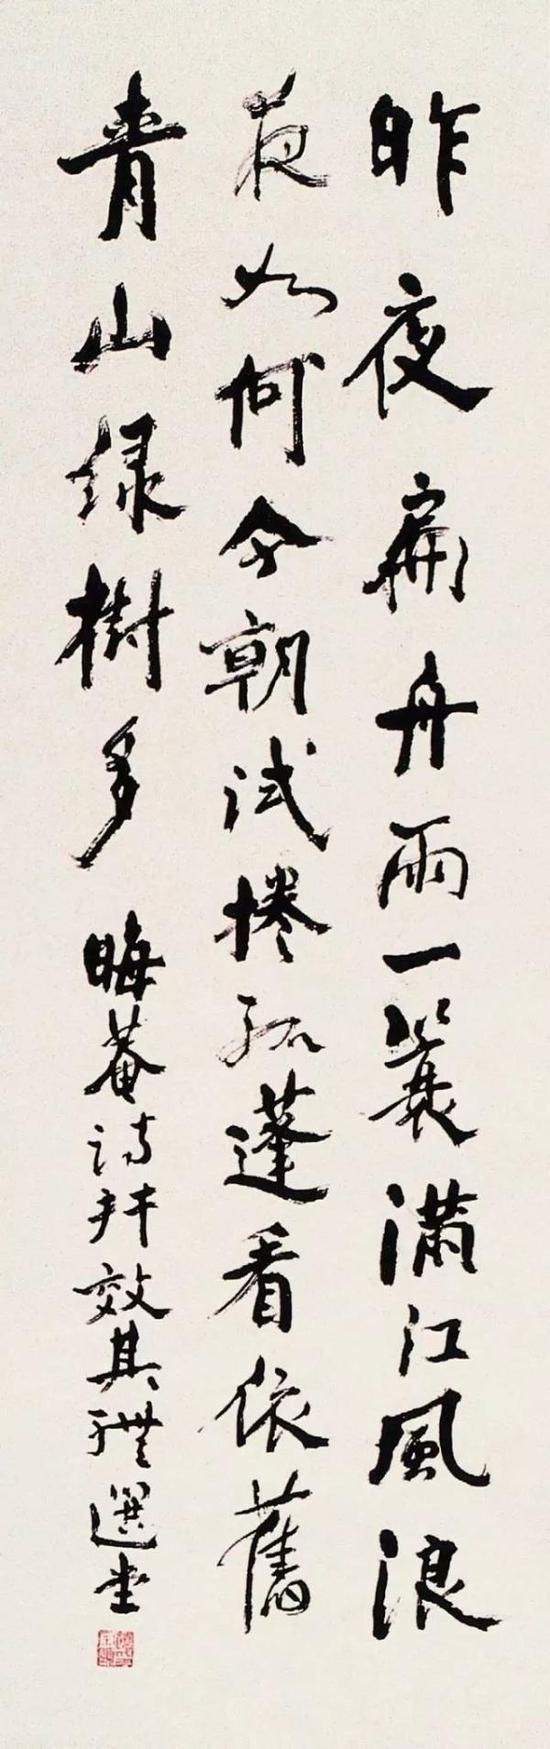 昨夜扁舟雨一蓑滿江風浪
夜如何今朝試捲孤蓬看依舊
青山綠樹多 晦菴詩并效其體選堂